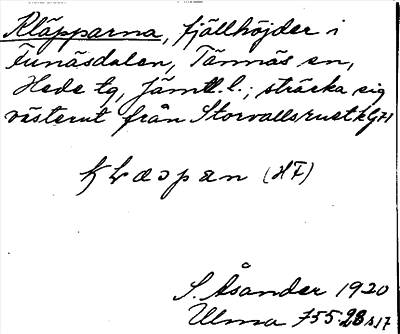 Kläpparna, fjällhöjder i
Funäsdalen, Tännäs sn,
Hede tg, Jämtl. l.; sträcka sig
västerut från Storvallsrust
Klæpan (HF)
S. Åsander 1920
Ulma 755:28 s. 17